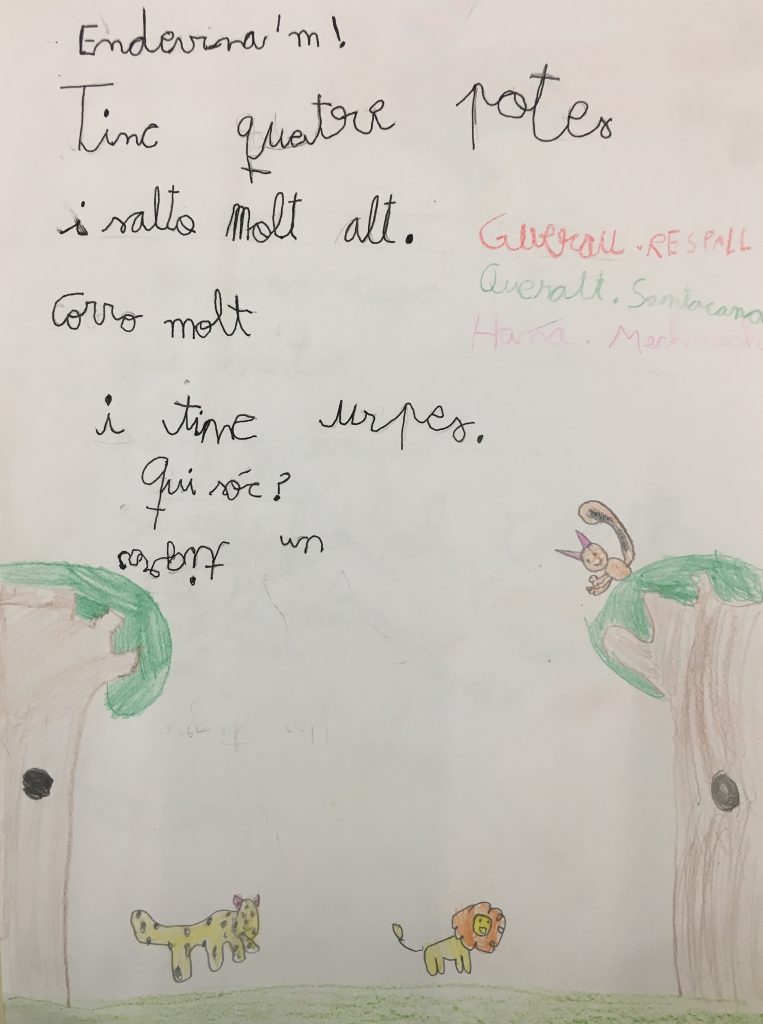 Endevina'm!
Tinc quatre potes
i salto molt alt.
Guerau . RESPALL
Queralt . Santacana
Corro molt
i tinc urpes.
Qui sóc?
un tigre
Un tigre